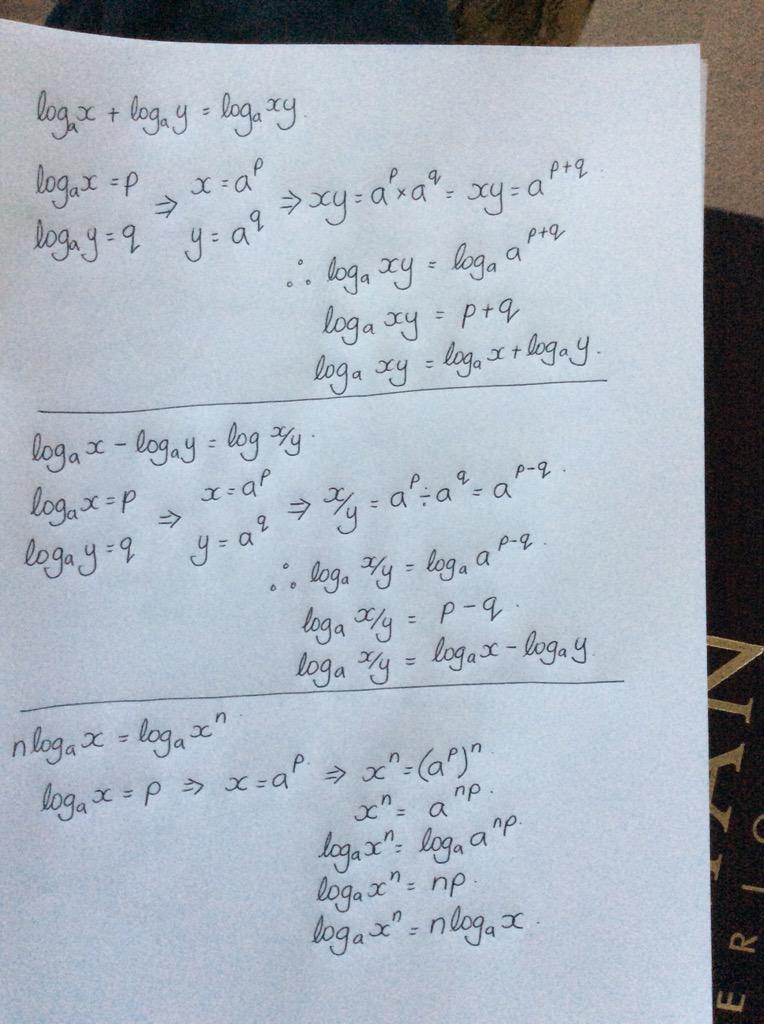 logₐx + logₐy = logₐxy.
logₐx = p ⇒ x = aᵖ ⇒ xy = aᵖ × a^q = xy = a^(p+q).
logₐy = q y = a^q
∴ logₐxy = logₐa^(p+q)
logₐxy = p+q
logₐxy = logₐx + logₐy.
logₐx - logₐy = log x/y.
logₐx = p ⇒ x = aᵖ ⇒ x/y = aᵖ ÷ a^q = a^(p-q).
logₐy = q y = a^q
∴ logₐx/y = logₐa^(p-q).
logₐx/y = p-q.
logₐx/y = logₐx - logₐy.
nlogₐx = logₐxⁿ.
logₐx = p ⇒ x = aᵖ. ⇒ xⁿ = (aᵖ)ⁿ.
xⁿ = aⁿᵖ.
logₐxⁿ = logₐaⁿᵖ.
logₐxⁿ = np.
logₐxⁿ = nlogₐx.